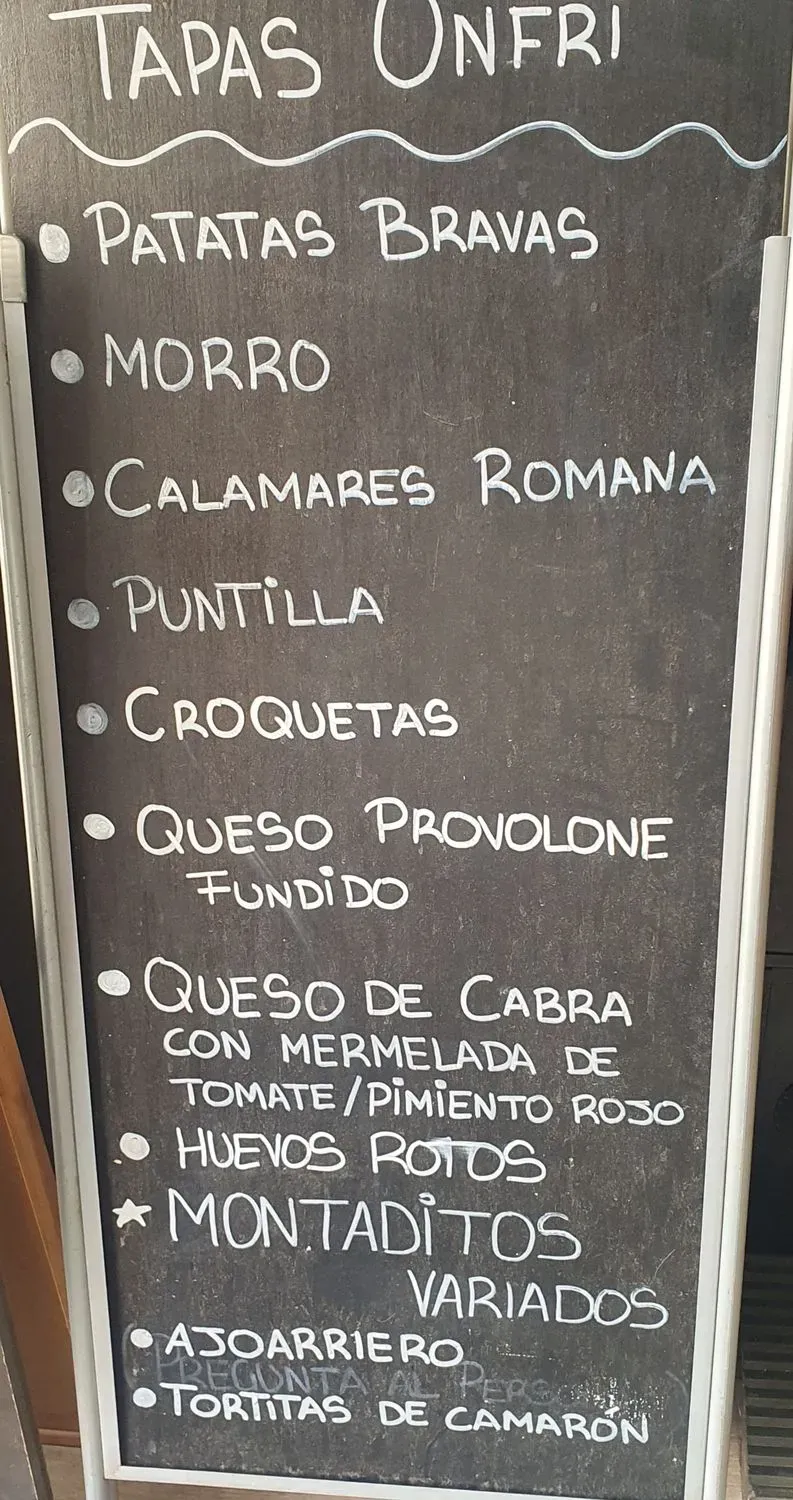 TAPAS ONFRI
PATATAS BRAVAS
MORRO
CALAMARES ROMANA
PUNTILLA
CROQUETAS
QUESO PROVOLONE
FUNDIDO
QUESO DE CABRA
CON MERMELADA DE
TOMATE/PIMIENTO ROJO
HUEVOS ROTOS
MONTADITOS
VARIADOS
AJOARRIERO
PREGUNTA AL
TORTITAS DE CAMARÓN